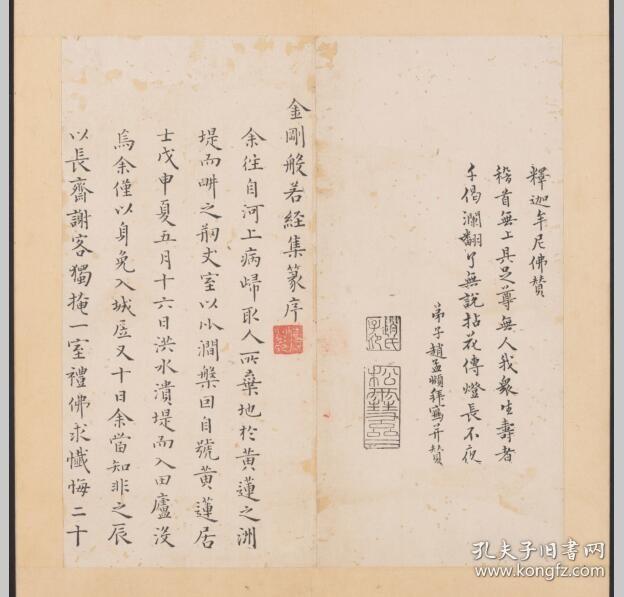 釋迦牟尼佛贊
稽首無上具足尊無人我衆生壽者
千偈瀾翻了無說拈花傳燈長不夜
弟子趙孟頫拜寫并贊
趙氏子昂
金剛般若經集篆序
余往自河上病歸取人所棄地於黄蓮之洲
堤而畊之荊丈室以水澗槃回自號黄蓮居
士戊申夏五月十六日洪水潰堤而入田廬没
焉余僅以身免入城虚又十日余當知非之辰
以長齋謝客獨掩一室禮佛求懺悔二十
孔夫子旧書网
www.kongfz.com